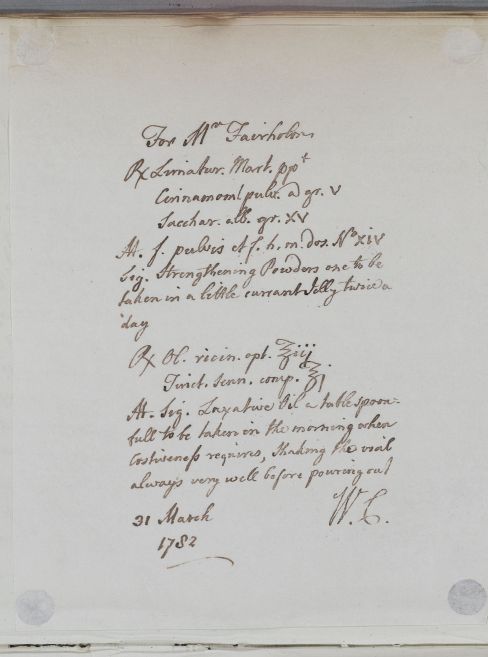 For Mrs Fairholm
Rx Limatur. Mart. ppt
Cinnamom pulv. a gr. V
Sacchar. alb. gr. XV
M. f. pulvis et f. h. m. dos. No xiv
Sig. Strengthening Powders one to be
taken in a little currant Jelly twice a
day
Rx Ol. ricin. opt. ℥iij
Tinct. senn. comp. ℥j
M. Sig. Laxative Oil a table spoon-
full to be taken in the morning when
Costiveness requires, Shaking the vial
always very well before pouring out
W. C.
31 March
1782